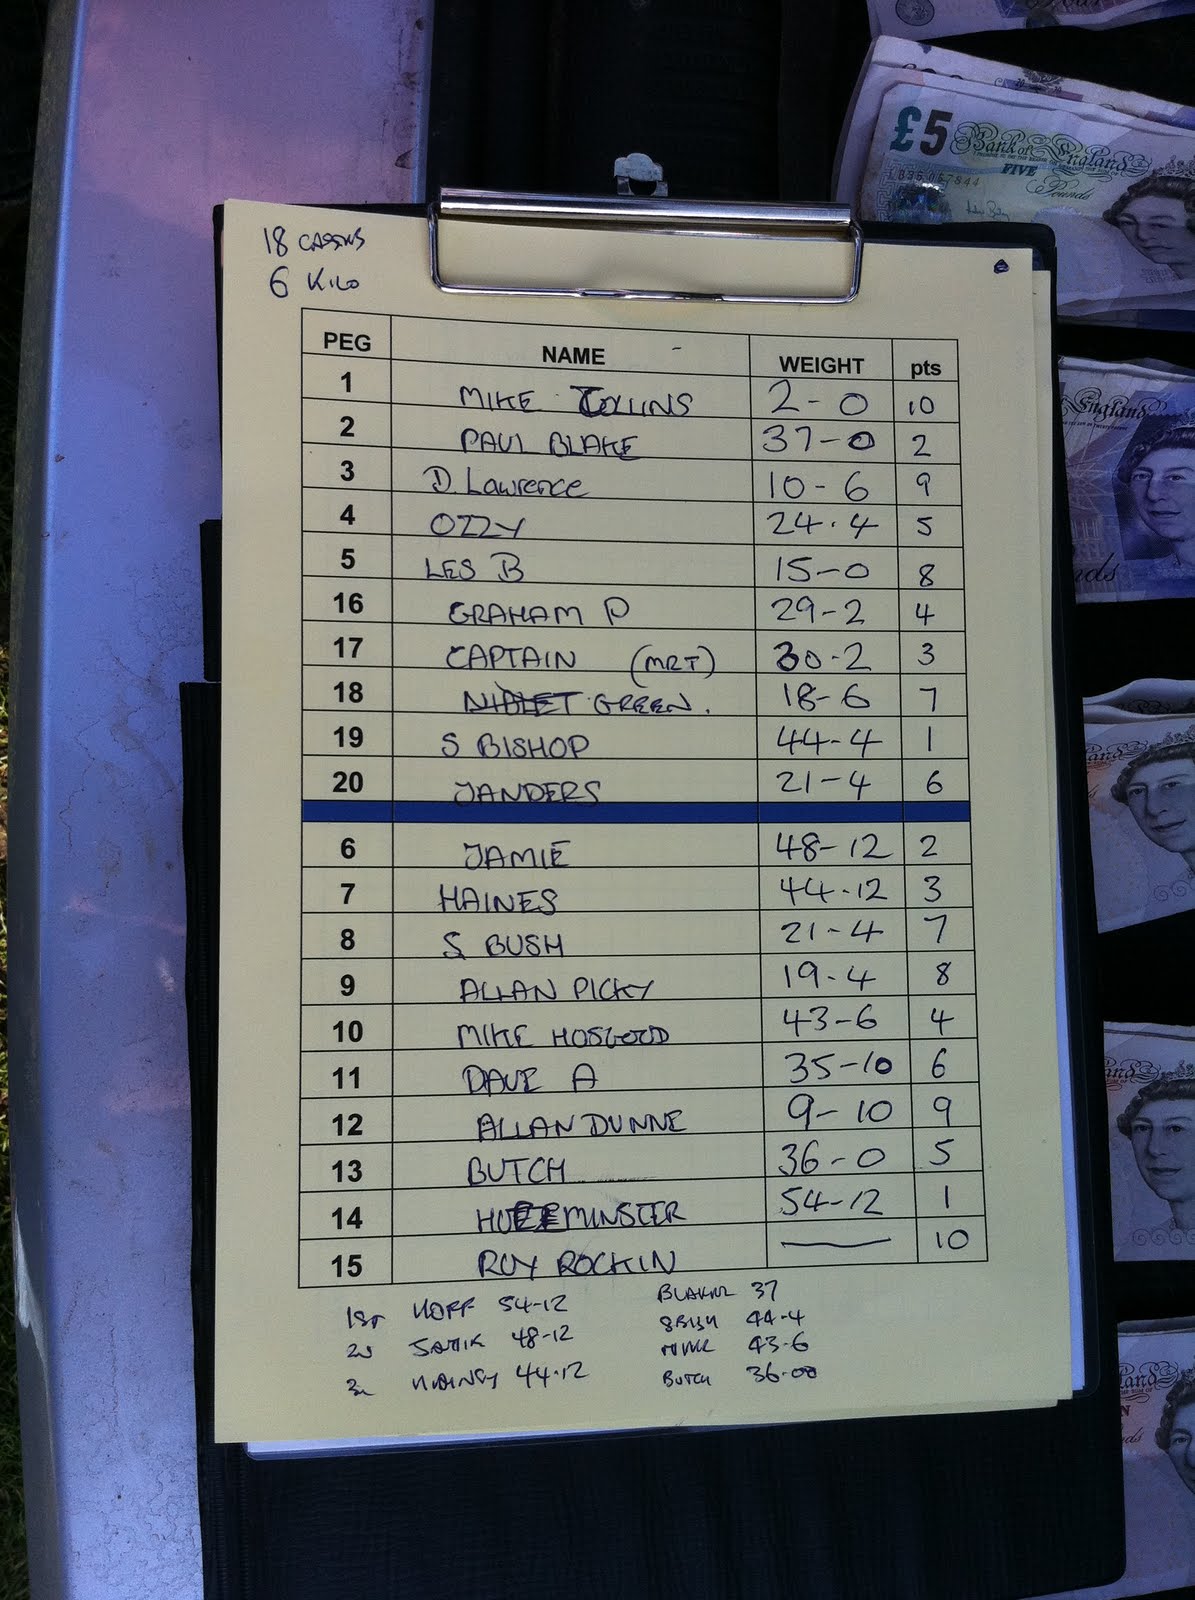 18 CASSINS
6 KILO
PEG NAME - WEIGHT pts
1 MIKE COLLINS 2-0 10
2 PAUL BLAKE 37-0 2
3 D. Lawrence 10-6 9
4 OZZY 24.4 5
5 LES B 15-0 8
16 GRAHAM P 29-2 4
17 CAPTAIN (MRT) 30-2 3
18 GREEN. 18-6 7
19 S BISHOP 44-4 1
20 JANDERS 21-4 6
6 JAMIE 48-12 2
7 HAINES 44-12 3
8 S BUSH 21-4 7
9 ALLAN PICKY 19-4 8
10 MIKE HOSGOOD 43-6 4
11 DAVE A 35-10 6
12 ALLAN DUNNE 9-10 9
13 BUTCH 36-0 5
14 HUFFMINSTER 54-12 1
15 ROY ROCKIN — 10
1ST HOFF 54-12 37
48-12 44-4
44-12 43-6
BUTCH 36-00
£5 Bank of England
FIVE
Pounds
England